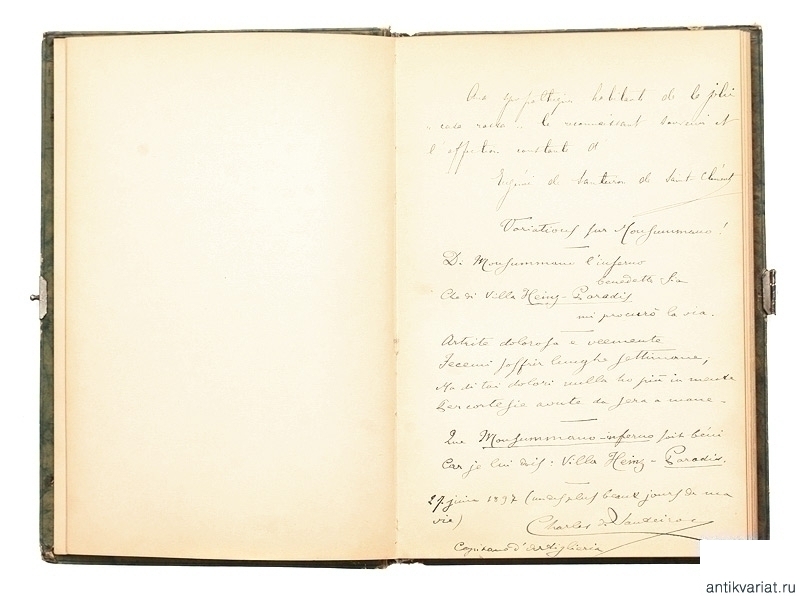 Aux sympathiques habitants de la jolie
"casa rossa" le reconnaissant souvenir et
l'affection constante d
Eugénie de Sauteiron de Saint-Clément
Variations sur Monsummano!
Di Monsummano l'inferno
benedetto sia
Che di Villa Heinz-Paradis
mi procurò la via.
Artrite dolorosa e veemente
Fecemi soffrir lunghe settimane,
Ma di tai dolori nulla ho più in mente
Per cortesie avute da sera a mane.
Que Monsummano-inferno soit béni
Car je lui dois: Villa Heinz-Paradis.
29 juin 1897 (un des plus beaux jours de ma
vie)
Charles de Sauteiron
Capitano d'artiglieria
antikvariat.ru